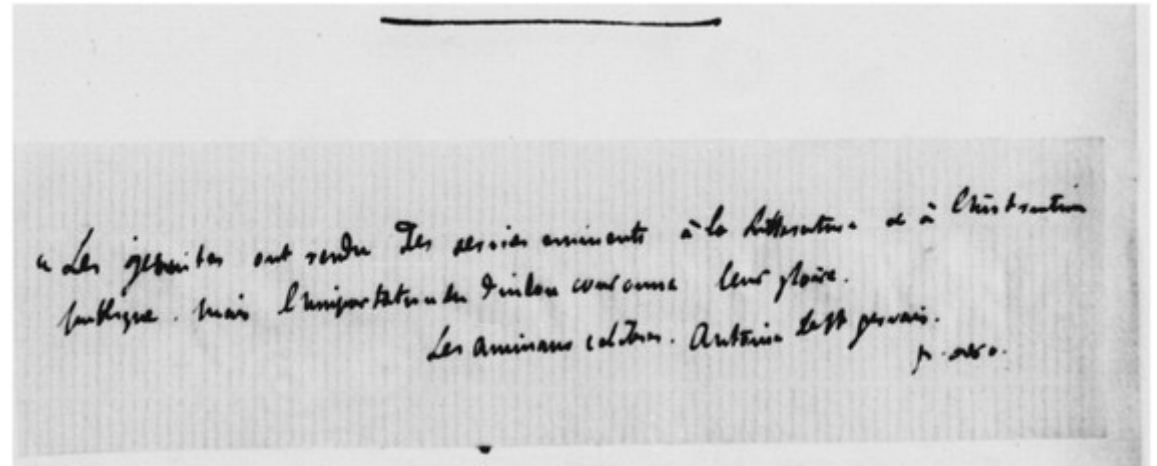 « Les gesuites ont rendu des services eminents à la litterature et à l'instruction
publique. mais l'importation du dindon couronne leur gloire.
Les animaux celebres. Antoine
p.